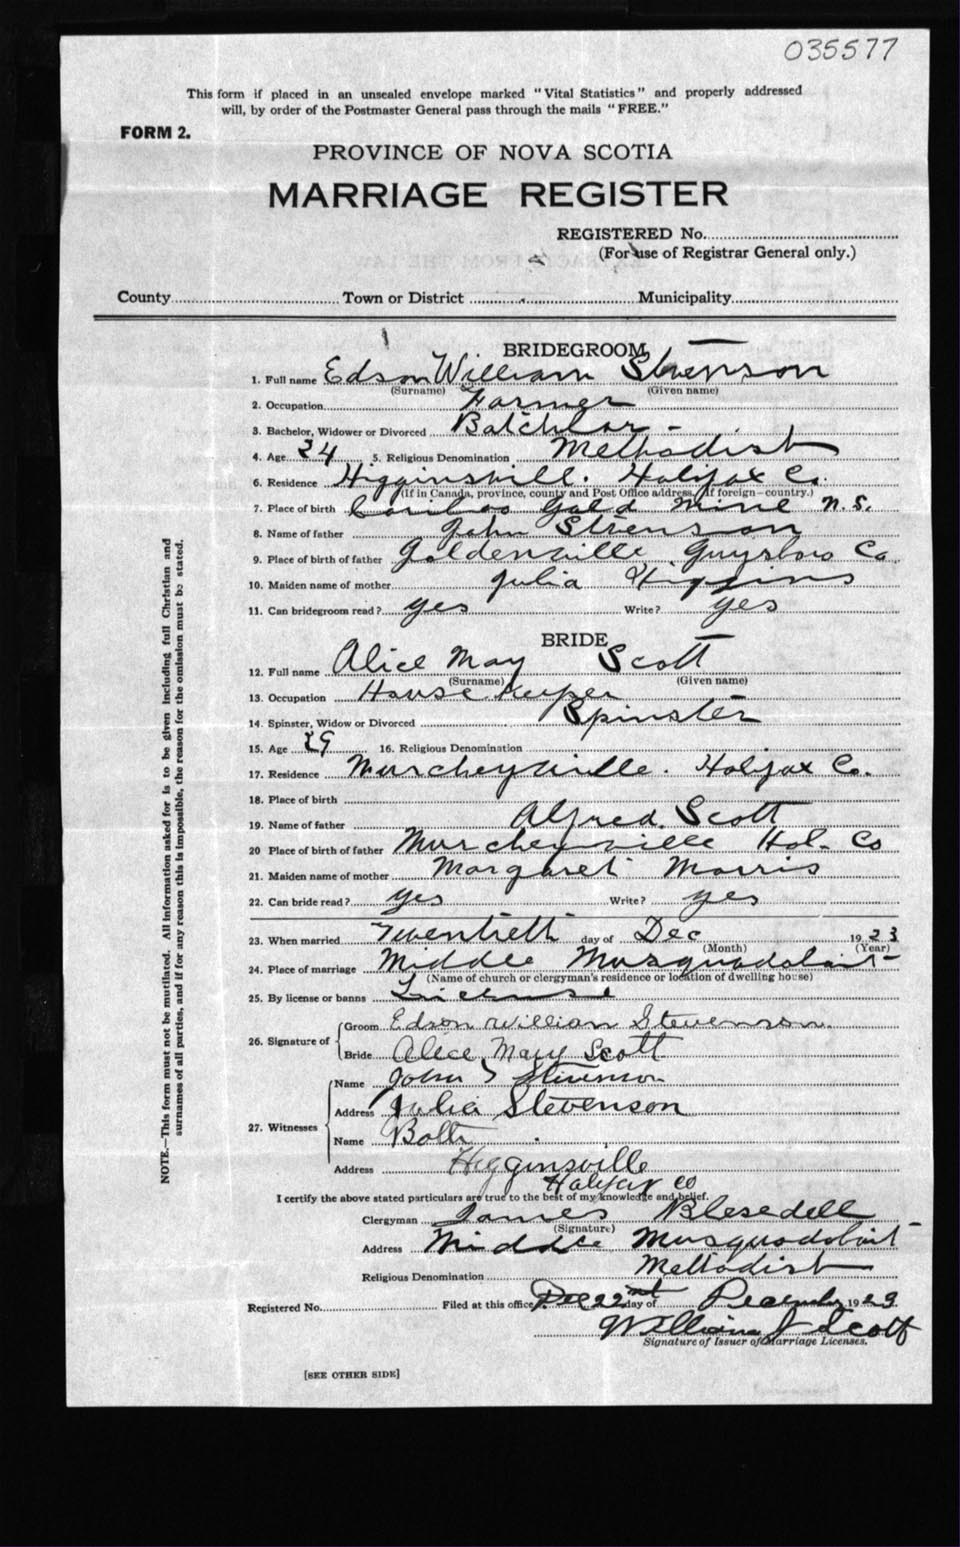 035577
This form if placed in an unsealed envelope marked "Vital Statistics" and properly addressed
will, by order of the Postmaster General pass through the mails "FREE."
FORM 2.
PROVINCE OF NOVA SCOTIA
MARRIAGE REGISTER
REGISTERED No.
(For use of Registrar General only.)
County Town or District Municipality
BRIDEGROOM
1. Full name Edson William Stevenson
(Surname) (Given name)
2. Occupation Farmer
3. Bachelor, Widower or Divorced Batchlor -
4. Age 24 5. Religious Denomination Methodist
6. Residence Higginsvill. Halifax Co.
(If in Canada, province, county and Post Office address, if foreign—country.)
7. Place of birth Caribeo Gold Mine N.S.
8. Name of father John Stevenson
9. Place of birth of father Goldenville Guysboro Co
10. Maiden name of mother Julia Higgins
11. Can bridegroom read? yes Write? yes
BRIDE
12. Full name Alice May Scott
(Surname) (Given name)
13. Occupation House Keeper
14. Spinster, Widow or Divorced Spinster
15. Age 29 16. Religious Denomination
17. Residence Murcheyville. Halifax Co.
18. Place of birth
19. Name of father Alfred Scott
20 Place of birth of father Murcheyville Hal. Co
21. Maiden name of mother Margaret Morris
22. Can bride read? yes Write? yes
23. When married Twentieth day of Dec 1923
(Month) (Year)
24. Place of marriage Middle Musquodoboit
(Name of church or clergyman's residence or location of dwelling house)
25. By license or banns License
26. Signature of Groom Edson William Stevenson.
Bride Alice May Scott
27. Witnesses Name John S Stevenson
Address Julia Stevenson
Name Both
Address Higginsville
Halifax Co
I certify the above stated particulars are true to the best of my knowledge and belief.
Clergyman James Blesedell
(Signature)
Address Middle Musquodoboit
Religious Denomination Methodist
Registered No. Filed at this office Dec 22nd day of December 1923
William J Scott
Signature of Issuer of Marriage Licenses.
[SEE OTHER SIDE]
NOTE.—This form must not be mutilated. All information asked for is to be given including full Christian and
surnames of all parties, and if for any reason this is impossible, the reason for the omission must be stated.